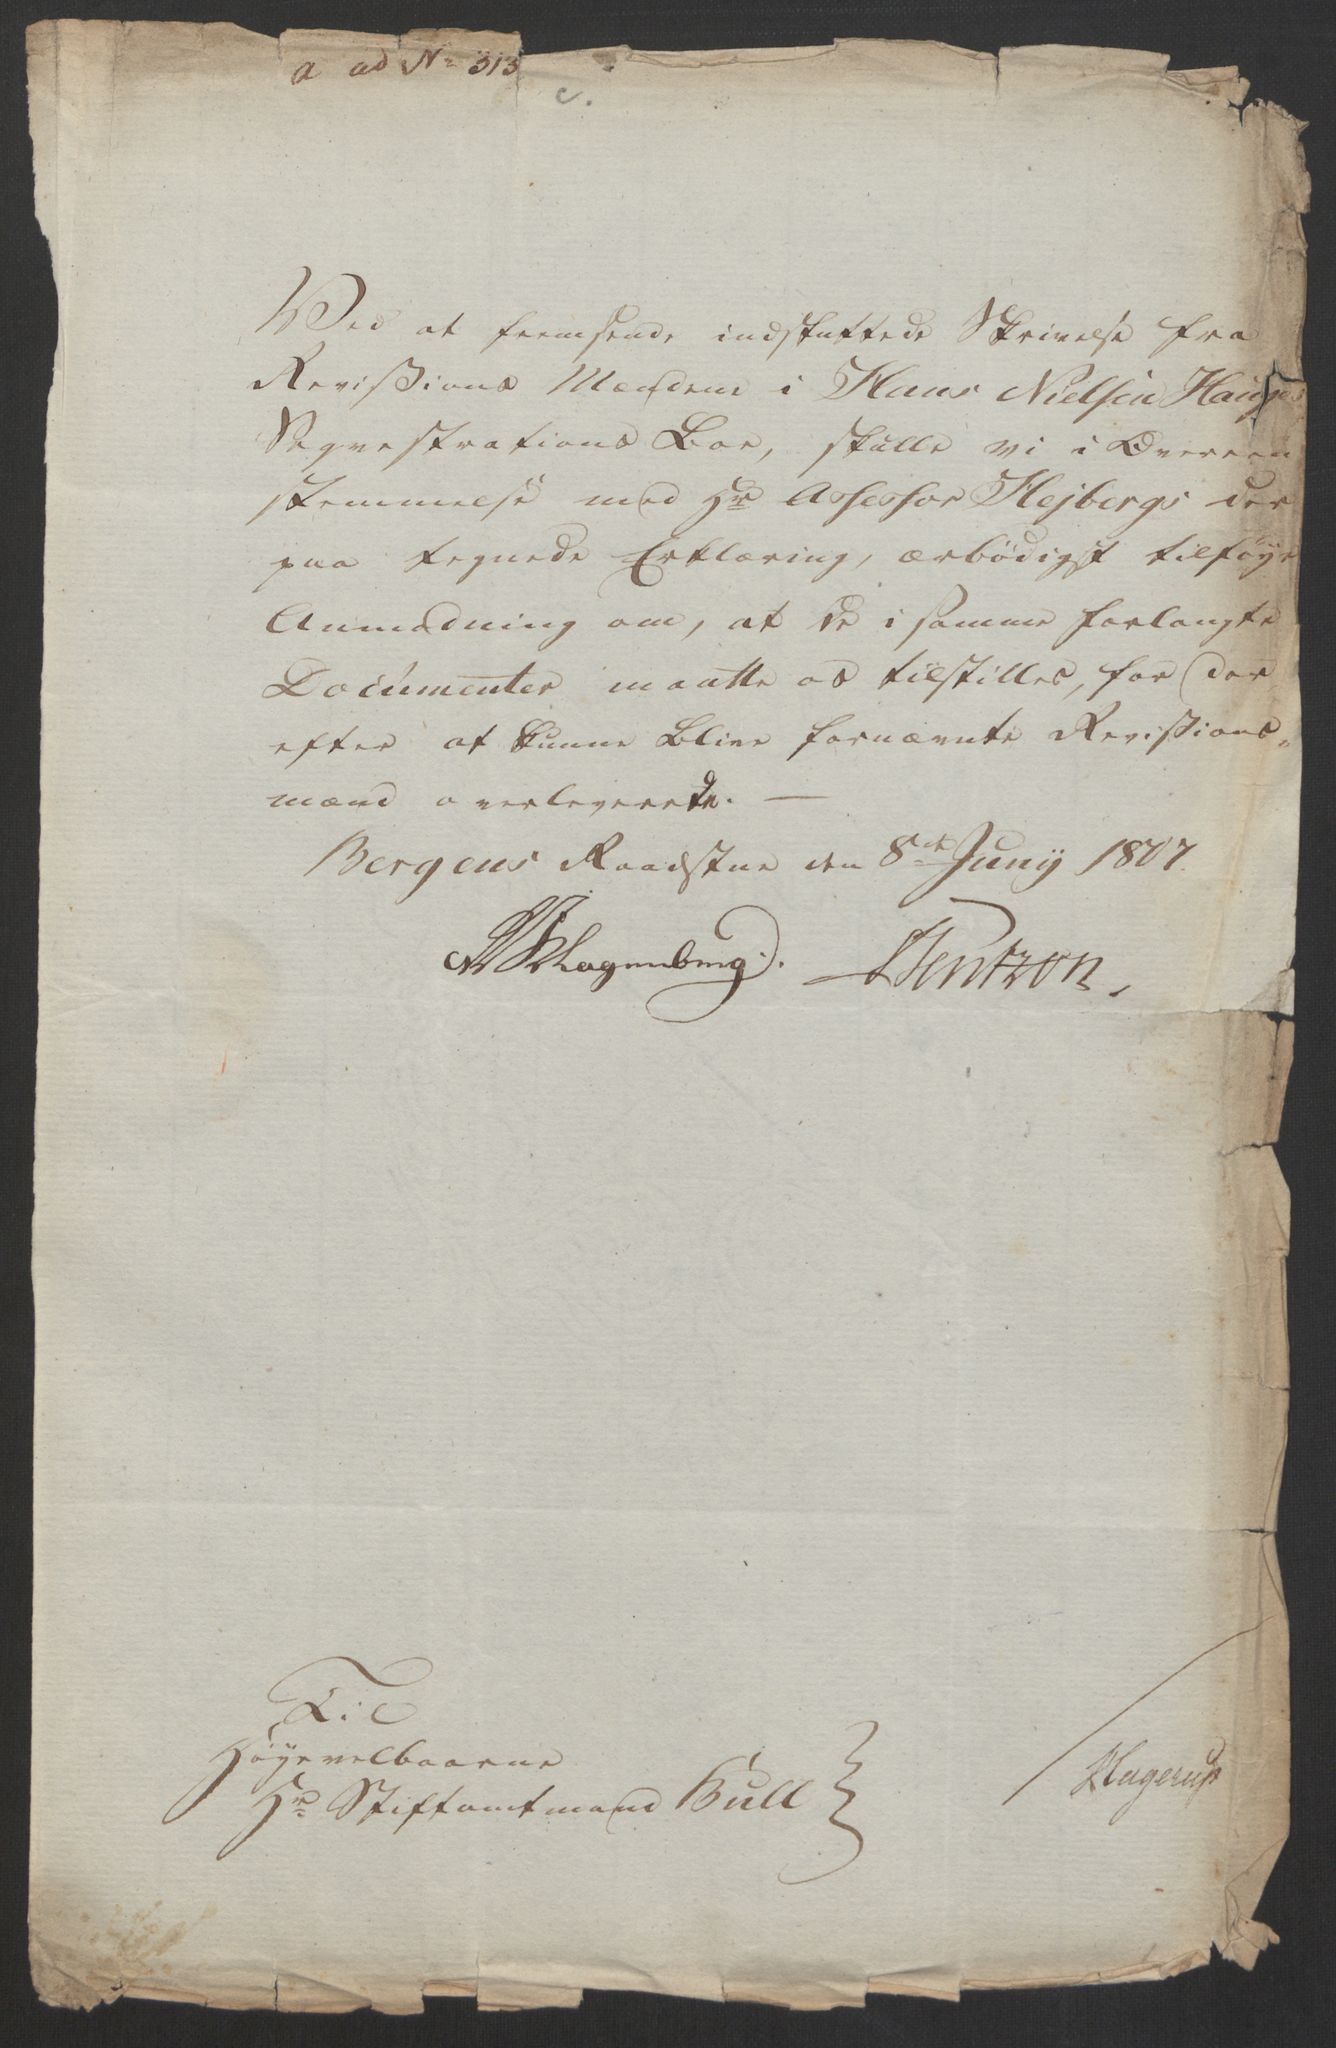 a ad No 313
c.
Ved at fremsende indsluttede Skrivelse fra
Revissions Mændene i Hans Nielsen Hauges
Seqvestrations Boe, skulle vi i Overeen
stemmelse med Hr Assessor Hejbergs der
paa tegnede Erklæring, ærbödigst tilföye
Anmodning om, at de i samme forlangte
Documenter maatte os tilstilles, for der
efter at kunne blive fornævnte Revissions-
mænd overleverede. —
Bergens Raadstue den 8de Junij 1807
Hagenberg. Wentzon,
Til
Höyevelbaarne
Hr Stiftamtmand Bull
Hagerup